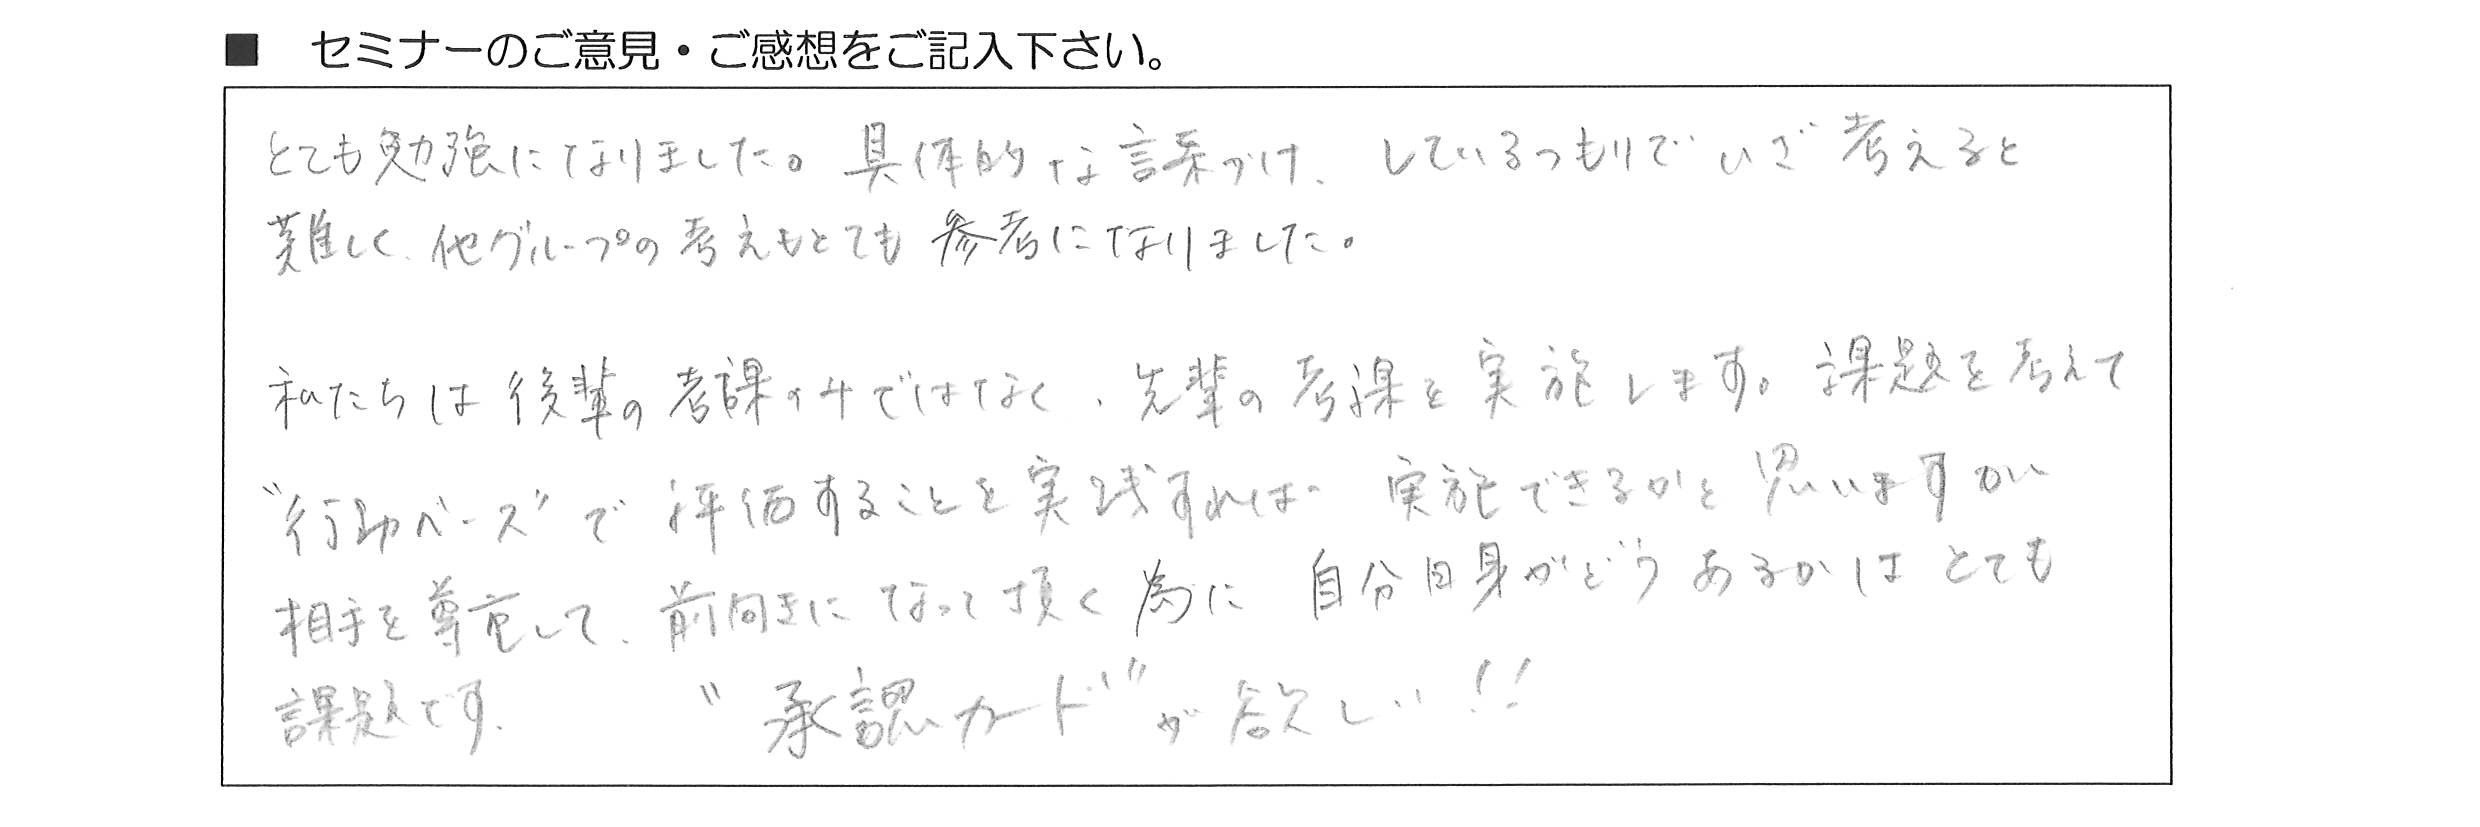 ■ セミナーのご意見・ご感想をご記入下さい。
とても勉強になりました。具体的な課づけ、しているつもりでいざ考えると
難しく、他グループの考えもとても参考になりました。
私たちは後輩の考課のみではなく、先輩の考課を実施します。課題を考えて
"行動ベース"で評価することを実践すれば 実施できるかと思いますが
相手を尊重して、前向きになって頂く為に 自分自身がどうあるかはとても
課題です。 "承認カード"が欲しい!!